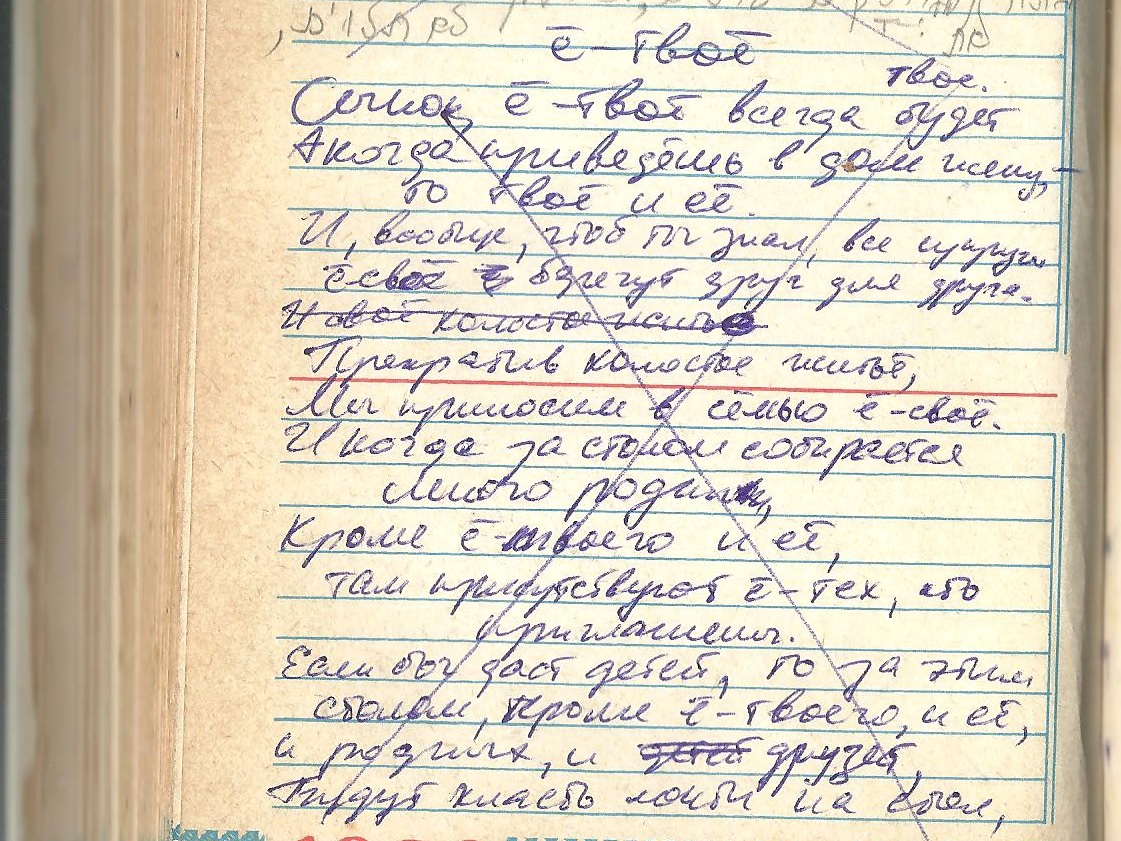 ё-твоё
твоё.
Сынок, ё-твоё всегда будет
А когда приведёшь в дом жену,-
то твоё и её.
И, вообще, чтоб ты знал, все супруги
ё своё берегут друг для друга.
И своё холостое житьё
Прекратив холостое житьё,
Мы приносим в семью ё-своё.
И когда за столом собирается
много родни,
Кроме ё-твоего и её,
там присутствуют ё-тех, кто
приглашены.
Если бог даст детей, то за этим
столом, кроме ё-твоего, и её,
и родных, и детей друзей,
Будут класть локти на стол,